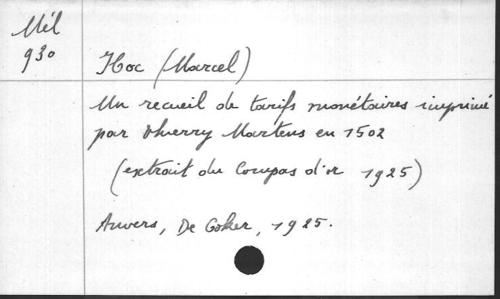 Mél
930
Hoc (Marcel)
Un recueil de tarifs monétaires imprimé
par Thierry Martens en 1502
(extrait du Compas d'or 1925)
Anvers, De Coker, 1925.